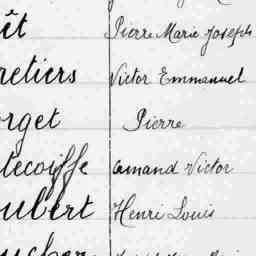 êt Pierre Marie Joseph
retiers Victor Emmanuel
rget Pierre
tecoiffe amand Victor
ubert Henri Louis